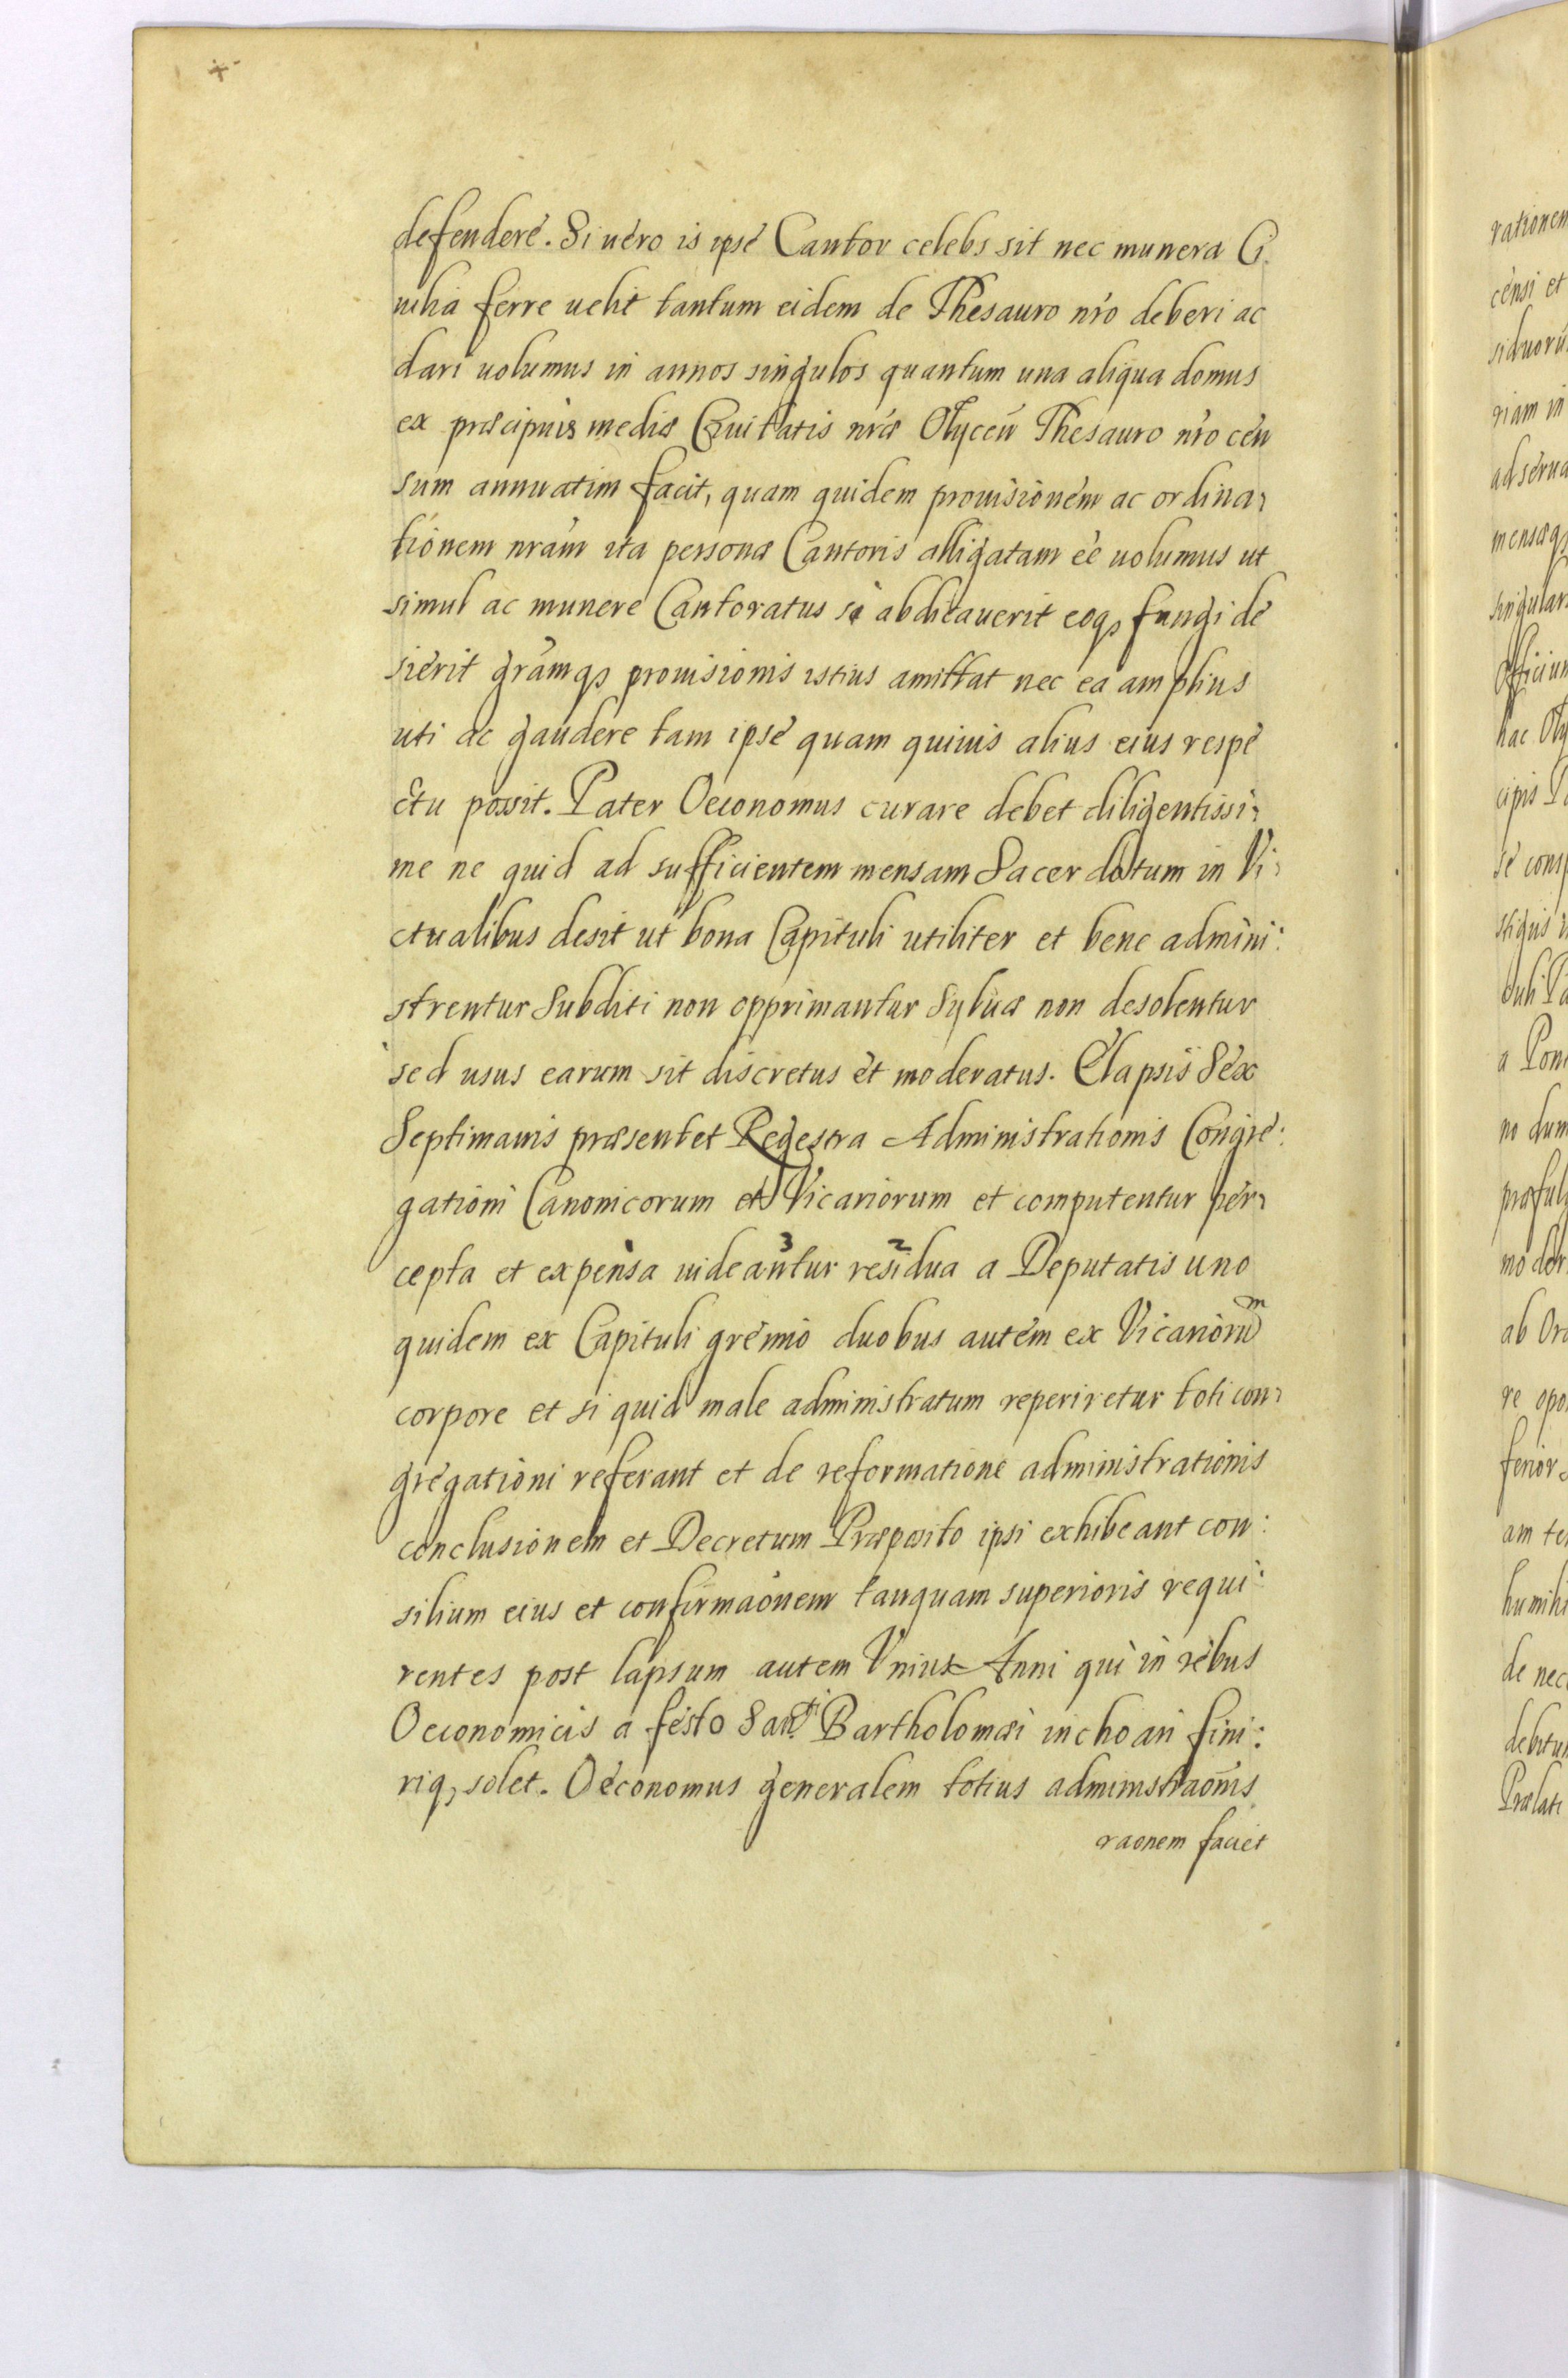 defendere. Si uero is ipse Cantor celebs sit nec munera Ci
uilia ferre uelit tantum eidem de Thesauro nr̃o deberi ac
dari uolumus in annos singulos quantum una aliqua domus
ex præcipuis mediæ Ciuitatis nr̃æ Olyceñ Thesauro nr̃o cen
sum annuatim facit, quam quidem prouisionem ac ordina-
tionem nr̃am ita personæ Cantoris alligatam eẽ uolumus ut
simul ac munere Cantoratus se abdicauerit eoq₃ fungi de
sierit gr̃amq₃ prouisionis istius amittat nec ea amplius
uti ac gaudere tam ipse quam quiuis alius eius respe
ctu possit. Pater Oeconomus curare debet diligentissi-
me ne quid ad sufficientem mensam Sacerdotum in Vi-
ctualibus desit ut bona Capituli utiliter et bene admini:
strentur Subditi non opprimantur Syluæ non desolentur
sed usus earum sit discretus et moderatus. Elapsis Sex
Septimanis præsentet Regestra Administrationis Congre:
gationi Canonicorum et Vicariorum et computentur per-
cepta et expensa uideantur 3 residua 2 a Deputatis uno
quidem ex Capituli gremio duobus autem ex Vicarioru m
corpore et si quid male administratum reperiretur toti con-
gregationi referant et de reformatione administrationis
conclusionem et Decretum Præposito ipsi exhibeant con:
silium eius et confirmaõnem tanquam superioris requi:
rentes post lapsum autem Vnius Anni qui in rebus
Oeconomicis a festo Sancti Bartholomæi inchoari fini:
riq₃ solet. Oeconomus generalem totius administraõnis
raonem faciet